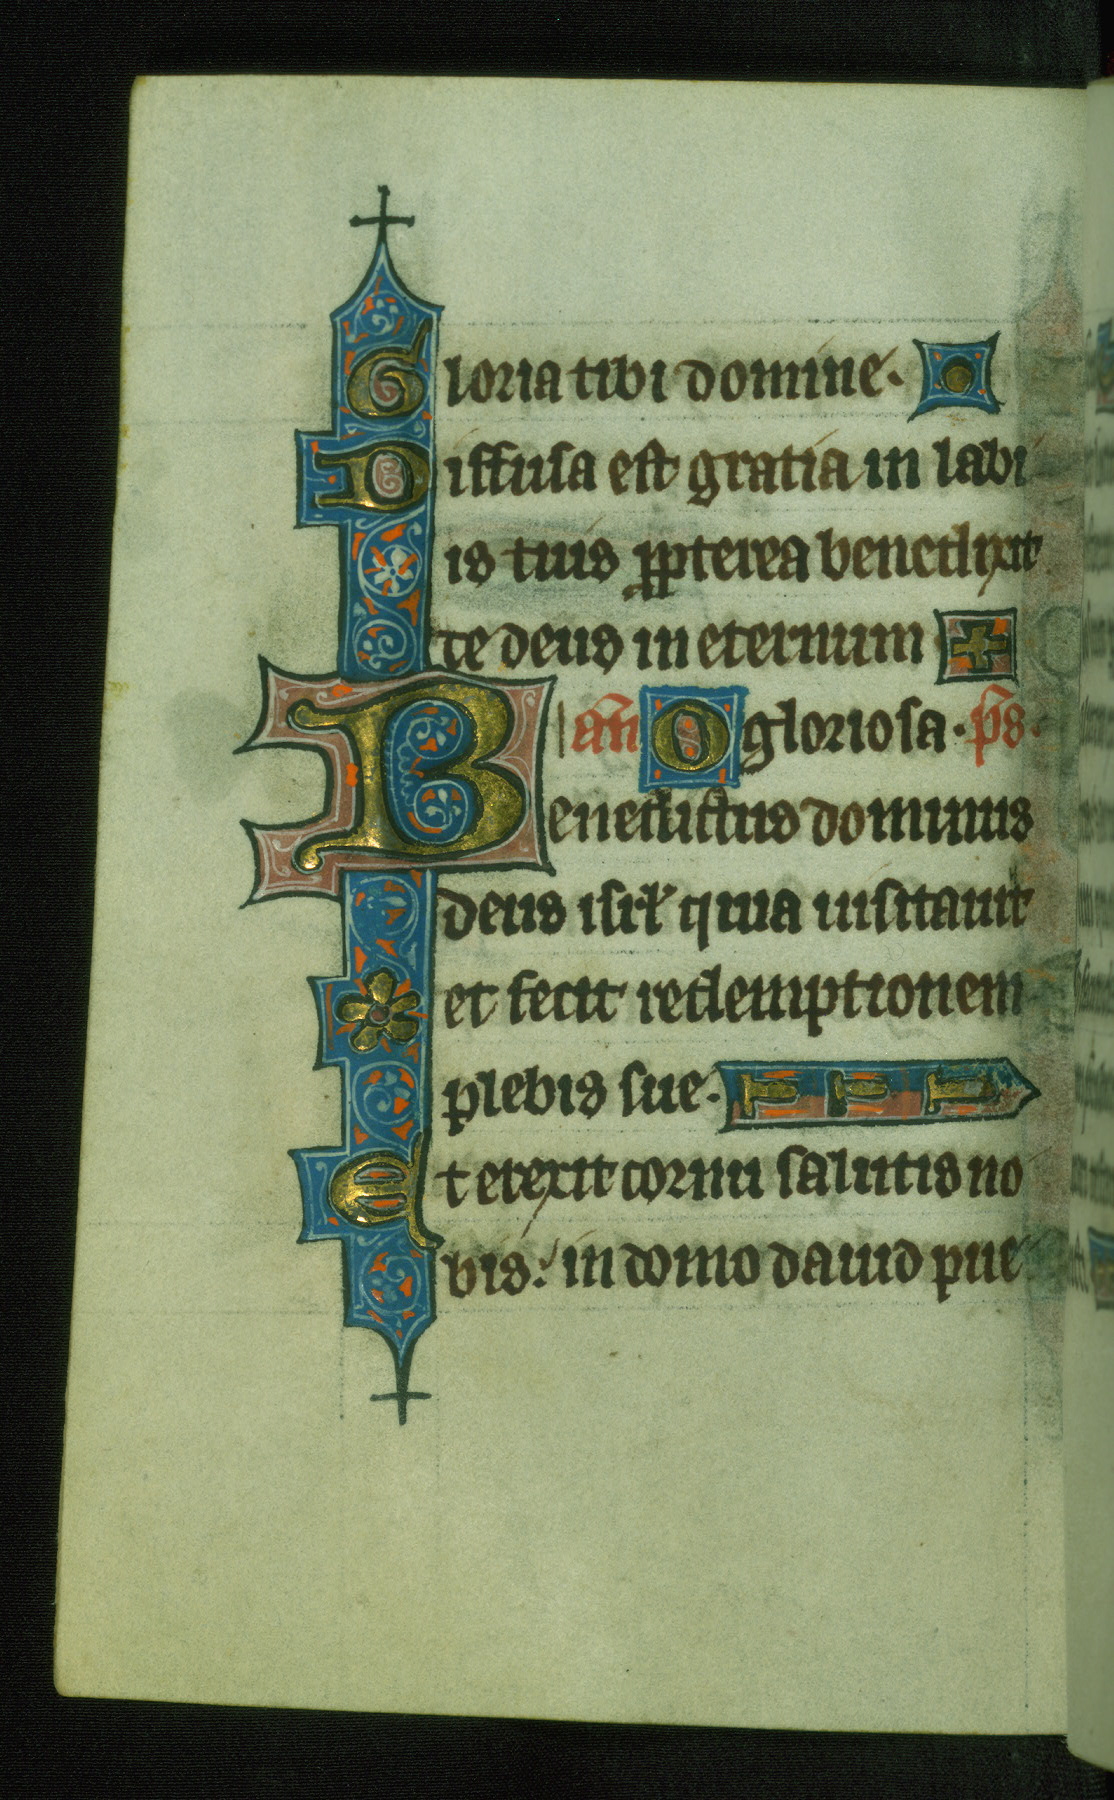 Gloria tibi domine.
Diffusa est gratia in labi
is tuis ꝓpterea benedixit
te deus in eternum
an̄ O gloriosa. ps̄.
Benedictus dominus
deus isrl̕ quia uisitauit
et fecit redemptionem
plebis sue.
Et erexit cornu salutis no
bis: in domo dauid pue